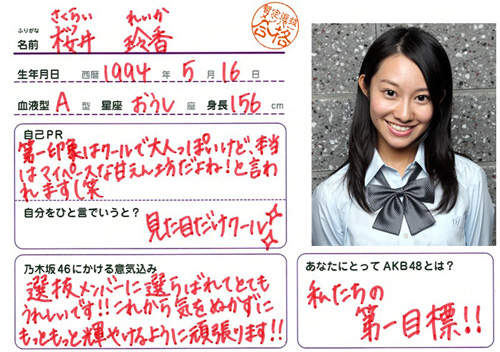 さくらい れいか
ふりがな
名前 桜井 玲香
暫定選抜 合格
生年月日 西暦 1994 年 5 月 16 日
血液型 A 型 星座 おうし 座 身長 156 cm
自己PR
第一印象はクールで大人っぽいけど、本当
はマイペースな甘えん坊だよね!と言わ
れます(笑
自分をひと言でいうと?
見た目だけクール
乃木坂46にかける意気込み
選抜メンバーに選らばれてとても
うれしいです!!これから気をぬかずに
もっともっと輝やけるように頑張ります!!
あなたにとってAKB48とは?
私たちの
第一目標!!